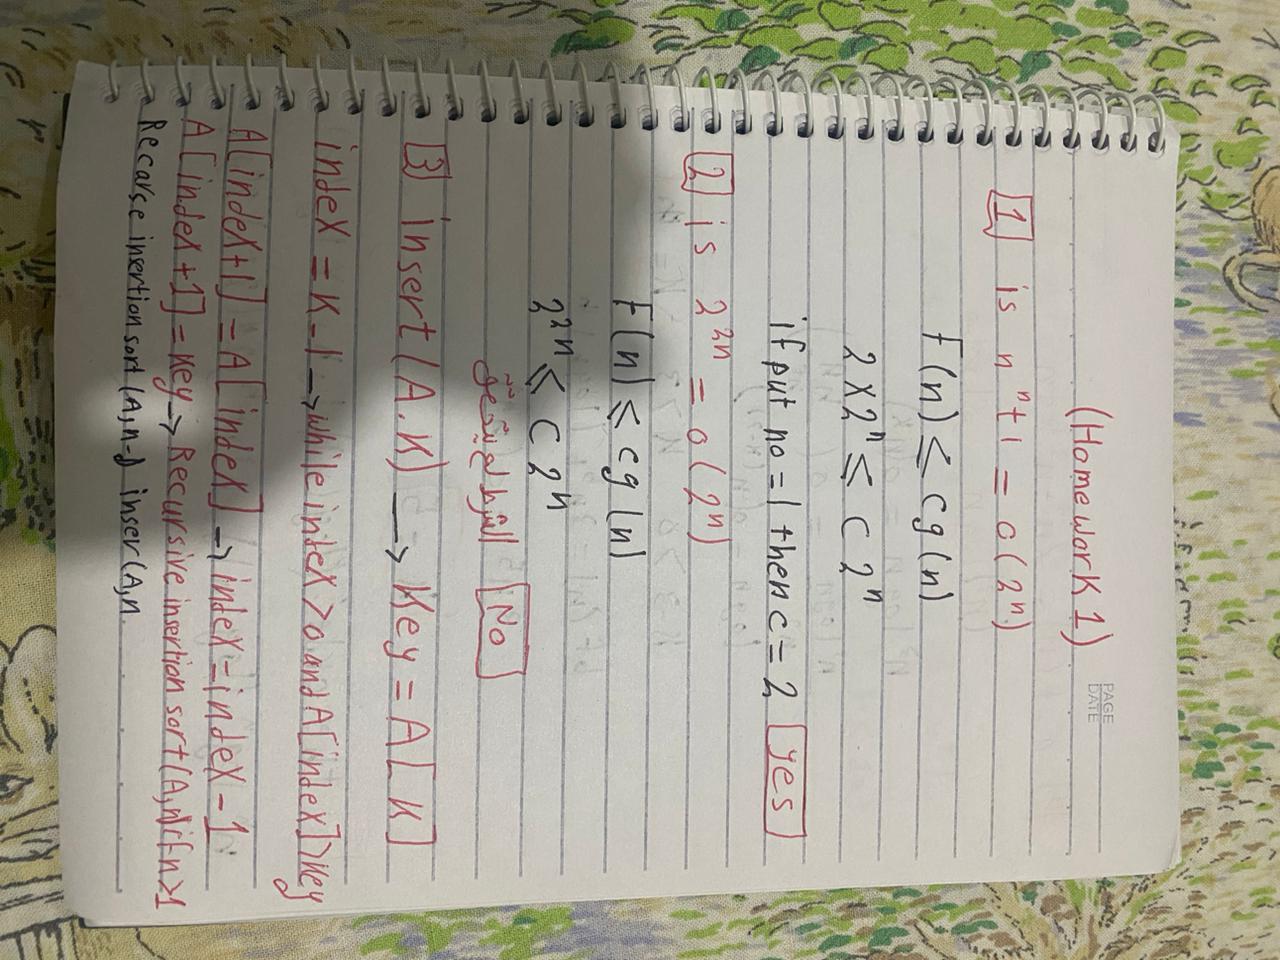 PAGE
DATE
(Homework 1)
1 is nⁿ+1 = o(2ⁿ)
F(n) ≤ cg(n)
2×2ⁿ ≤ C 2ⁿ
if put no=1 then c=2 yes
2 is 2²ⁿ = o(2ⁿ)
F(n) ≤ cg(n)
2²ⁿ ≤ C 2ⁿ
No
3 insert(A.K) → Key = A[K]
index = K-1 → while index>0 and A[index]>Key
A[index+1] = A[index] → index=index-1
A[index+1] = Key → Recursive insertion sort(A,n) if n>1
Recarse insertion sort (A,n-1) inser(A,n.